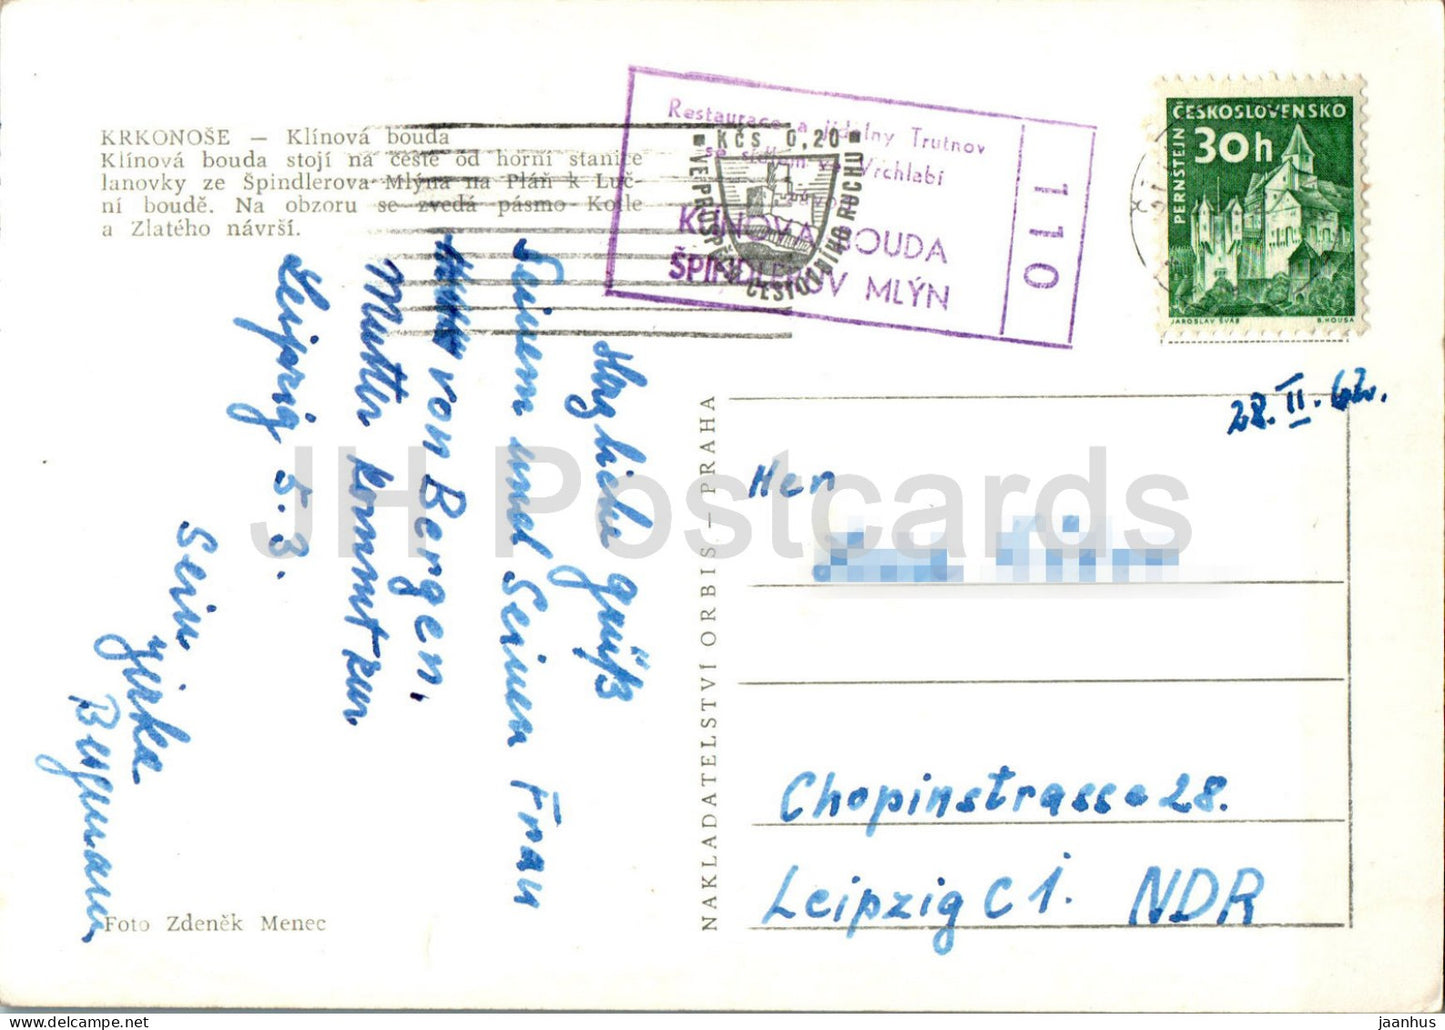 KRKONOŠE — Klínová bouda
Klínová bouda stojí na cestě od horní stanice
lanovky ze Špindlerova Mlýna na Pláň k Luč-
ní boudě. Na obzoru se zvedá pásmo Kotle
a Zlatého návrší.
Restaurace a jídelny Trutnov
se sídlem ve Vrchlabí
KLÍNOVÁ BOUDA
ŠPINDLERŮV MLÝN
110
KČS 0,20
VE PROSPĚCH CESTOVNÍHO RUCHU
ČESKOSLOVENSKO
30h
PERNŠTEJN
JAROSLAV ŠVÁB
B. HOUSA
28. II. 62.
Herzliche Grüße
Deinem und Deiner Frau
von Bergen.
Mutter kommt zur
Leipzig 5.3.
Dein
Jirka
NAKLADATELSTVÍ ORBIS — PRAHA
Herr
Chopinstrasse 28.
Leipzig C 1. NDR
Foto Zdeněk Menec
JH Postcards
jaanhus © www.delcampe.net